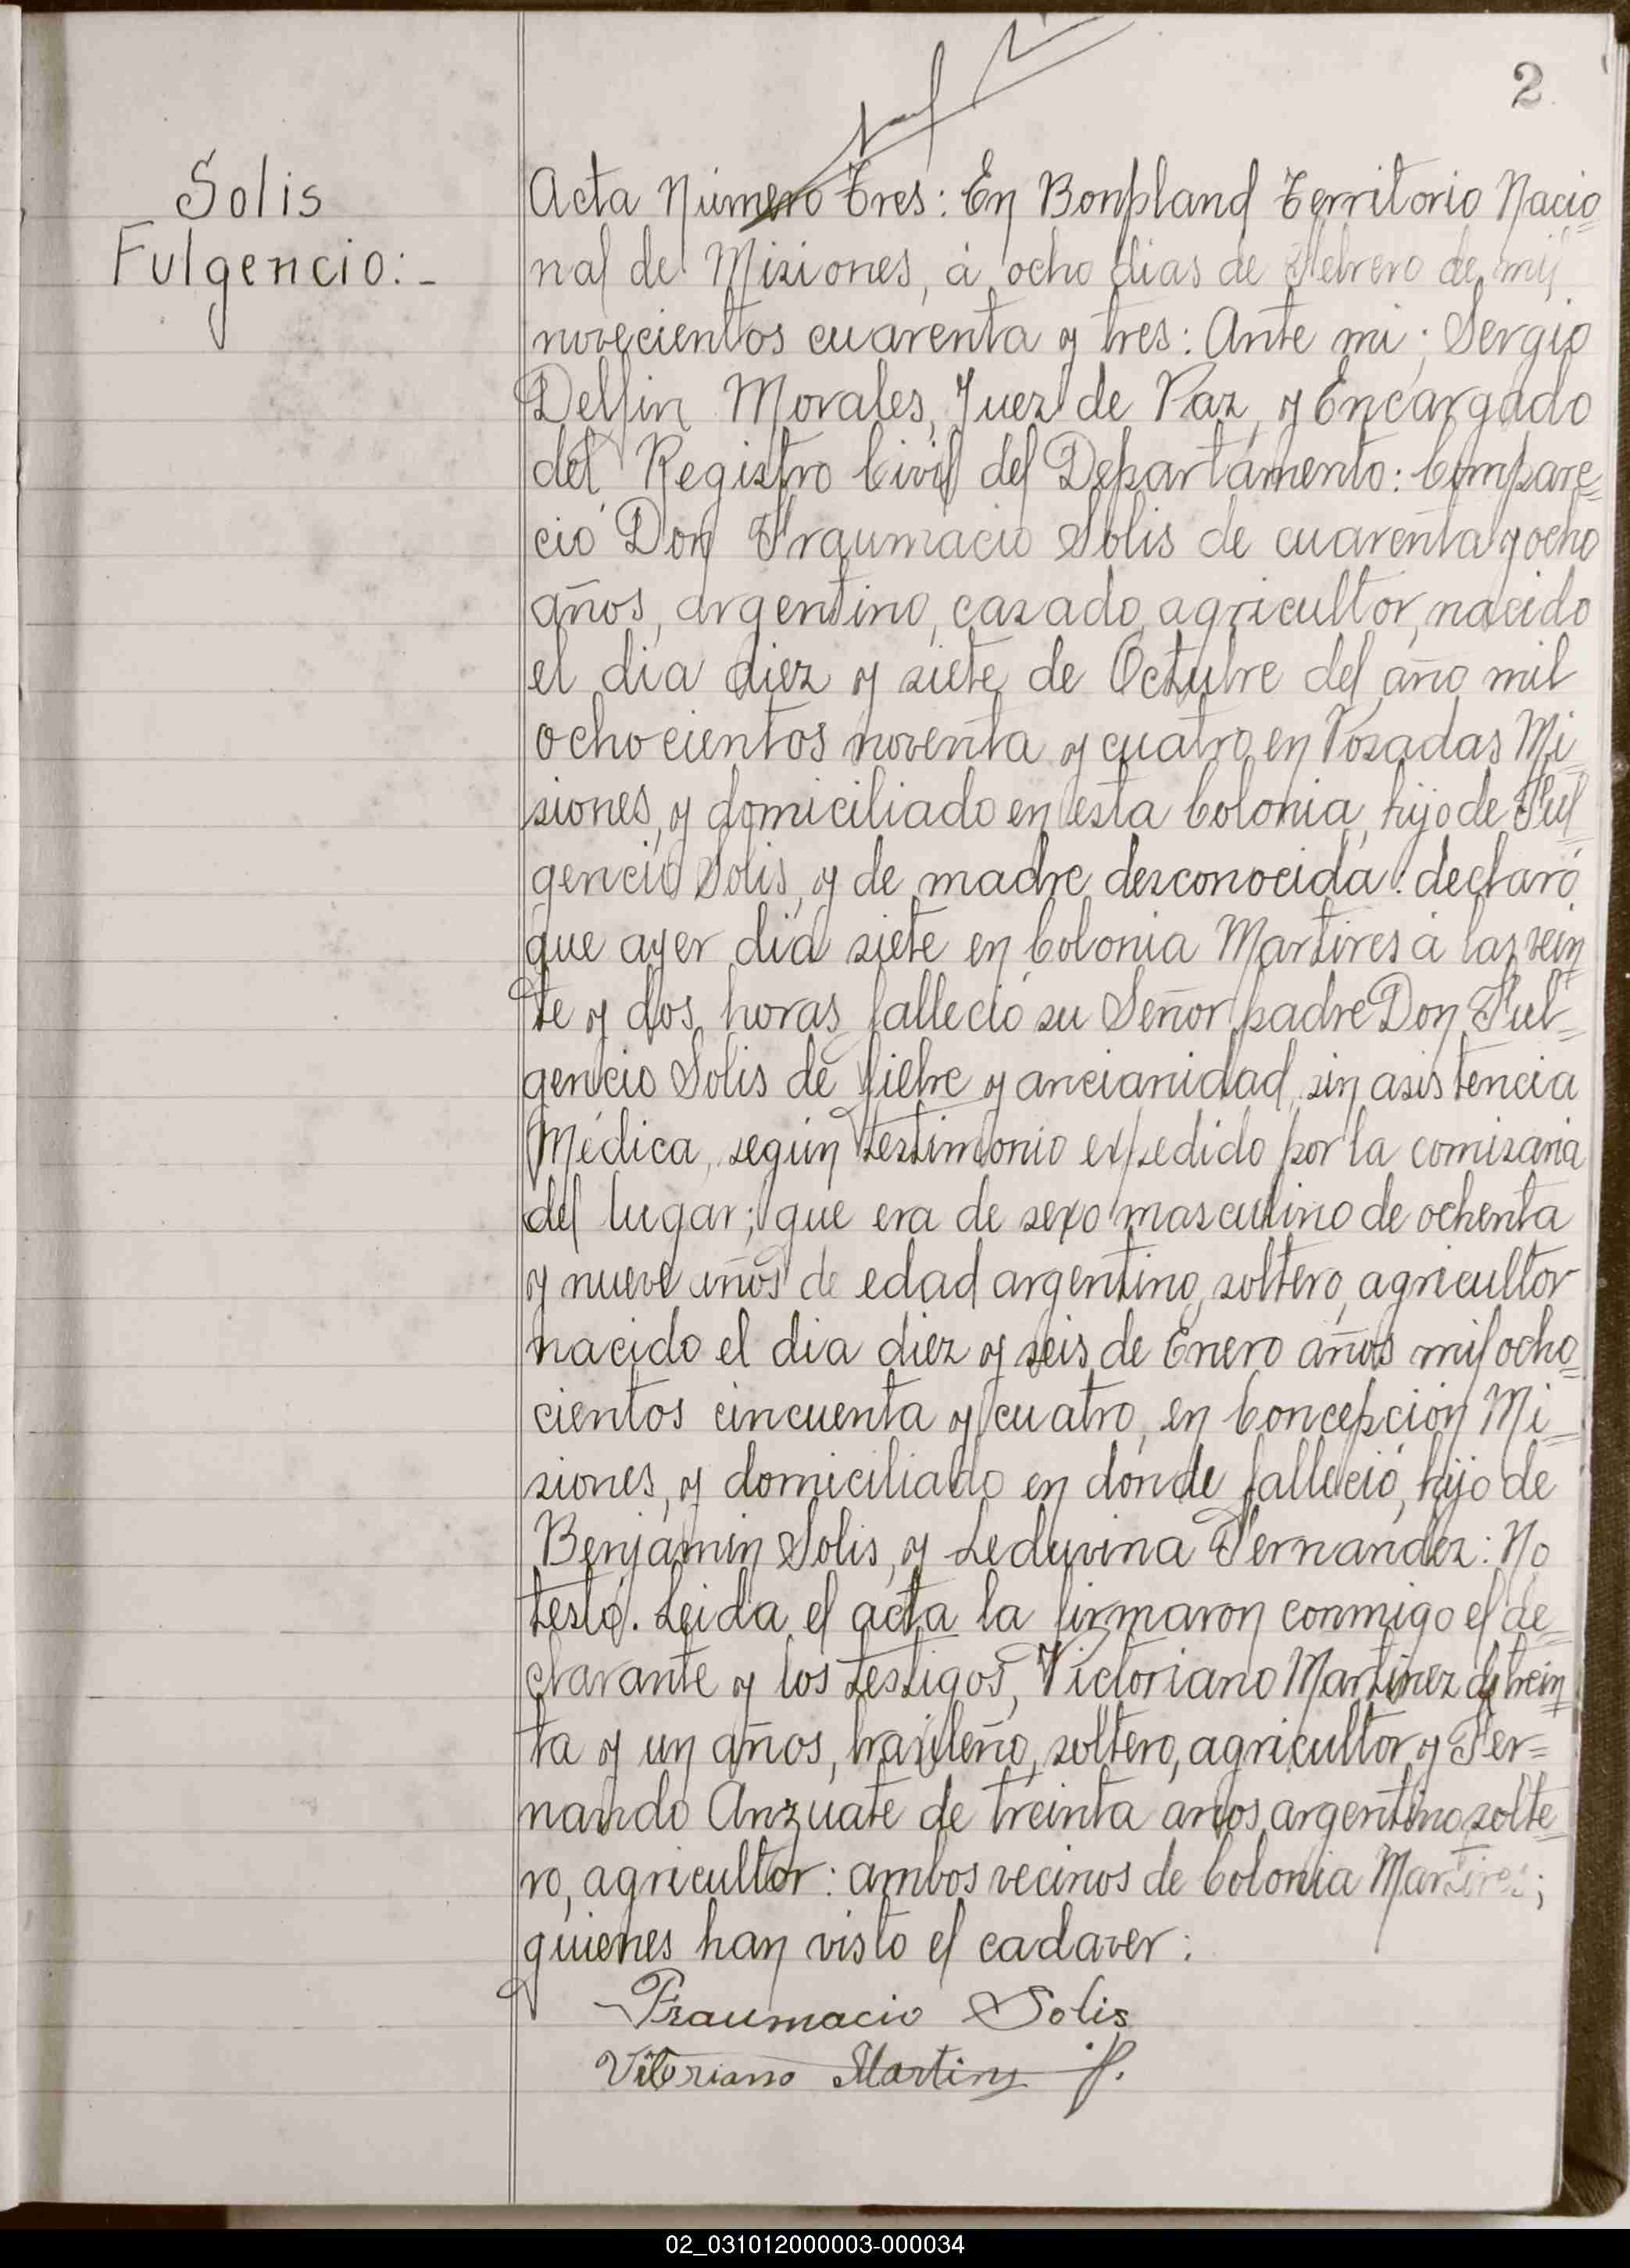 2
Solis
Fulgencio:-
Acta Número Tres: En Bonpland Territorio Nacio=
nal de Misiones, á ocho dias de Febrero de mil
novecientos cuarenta y tres: Ante mi; Sergio
Delfin Morales, Juez de Paz, y Encargado
del Registro Civil del Departamento: Compare=
ció Don Fraumacio Solis de cuarenta y ocho
años, argentino, casado, agricultor, nacido
el dia diez y siete de Octubre del año mil
ochocientos noventa y cuatro, en Posadas Mi=
siones, y domiciliado en esta Colonia, hijo de Ful=
gencio Solis, y de madre desconocida: declaró
que ayer dia siete en Colonia Martires á las vein=
te y dos horas falleció su Señor padre Don Ful=
gencio Solis de fiebre y ancianidad, sin asistencia
Médica, según testimonio expedido por la comisaria
del lugar; que era de sexo masculino de ochenta
y nueve años de edad argentino, soltero, agricultor
nacido el dia diez y seis de Enero años mil ocho=
cientos cincuenta y cuatro, en Concepción Mi=
siones, y domiciliado en donde falleció, hijo de
Benjamin Solis, y Leduvina Fernandez: No
testó. Leida el acta la firmaron conmigo el de=
clarante y los testigos, Victoriano Martinez de trein=
ta y un años, brasileño, soltero, agricultor y Fer=
nando Anzuate de treinta años argentino solte=
ro, agricultor: ambos vecinos de Colonia Martires;
quienes han visto el cadaver:
Fraumacio Solis
Vitoriano Martins
02_031012000003-000034